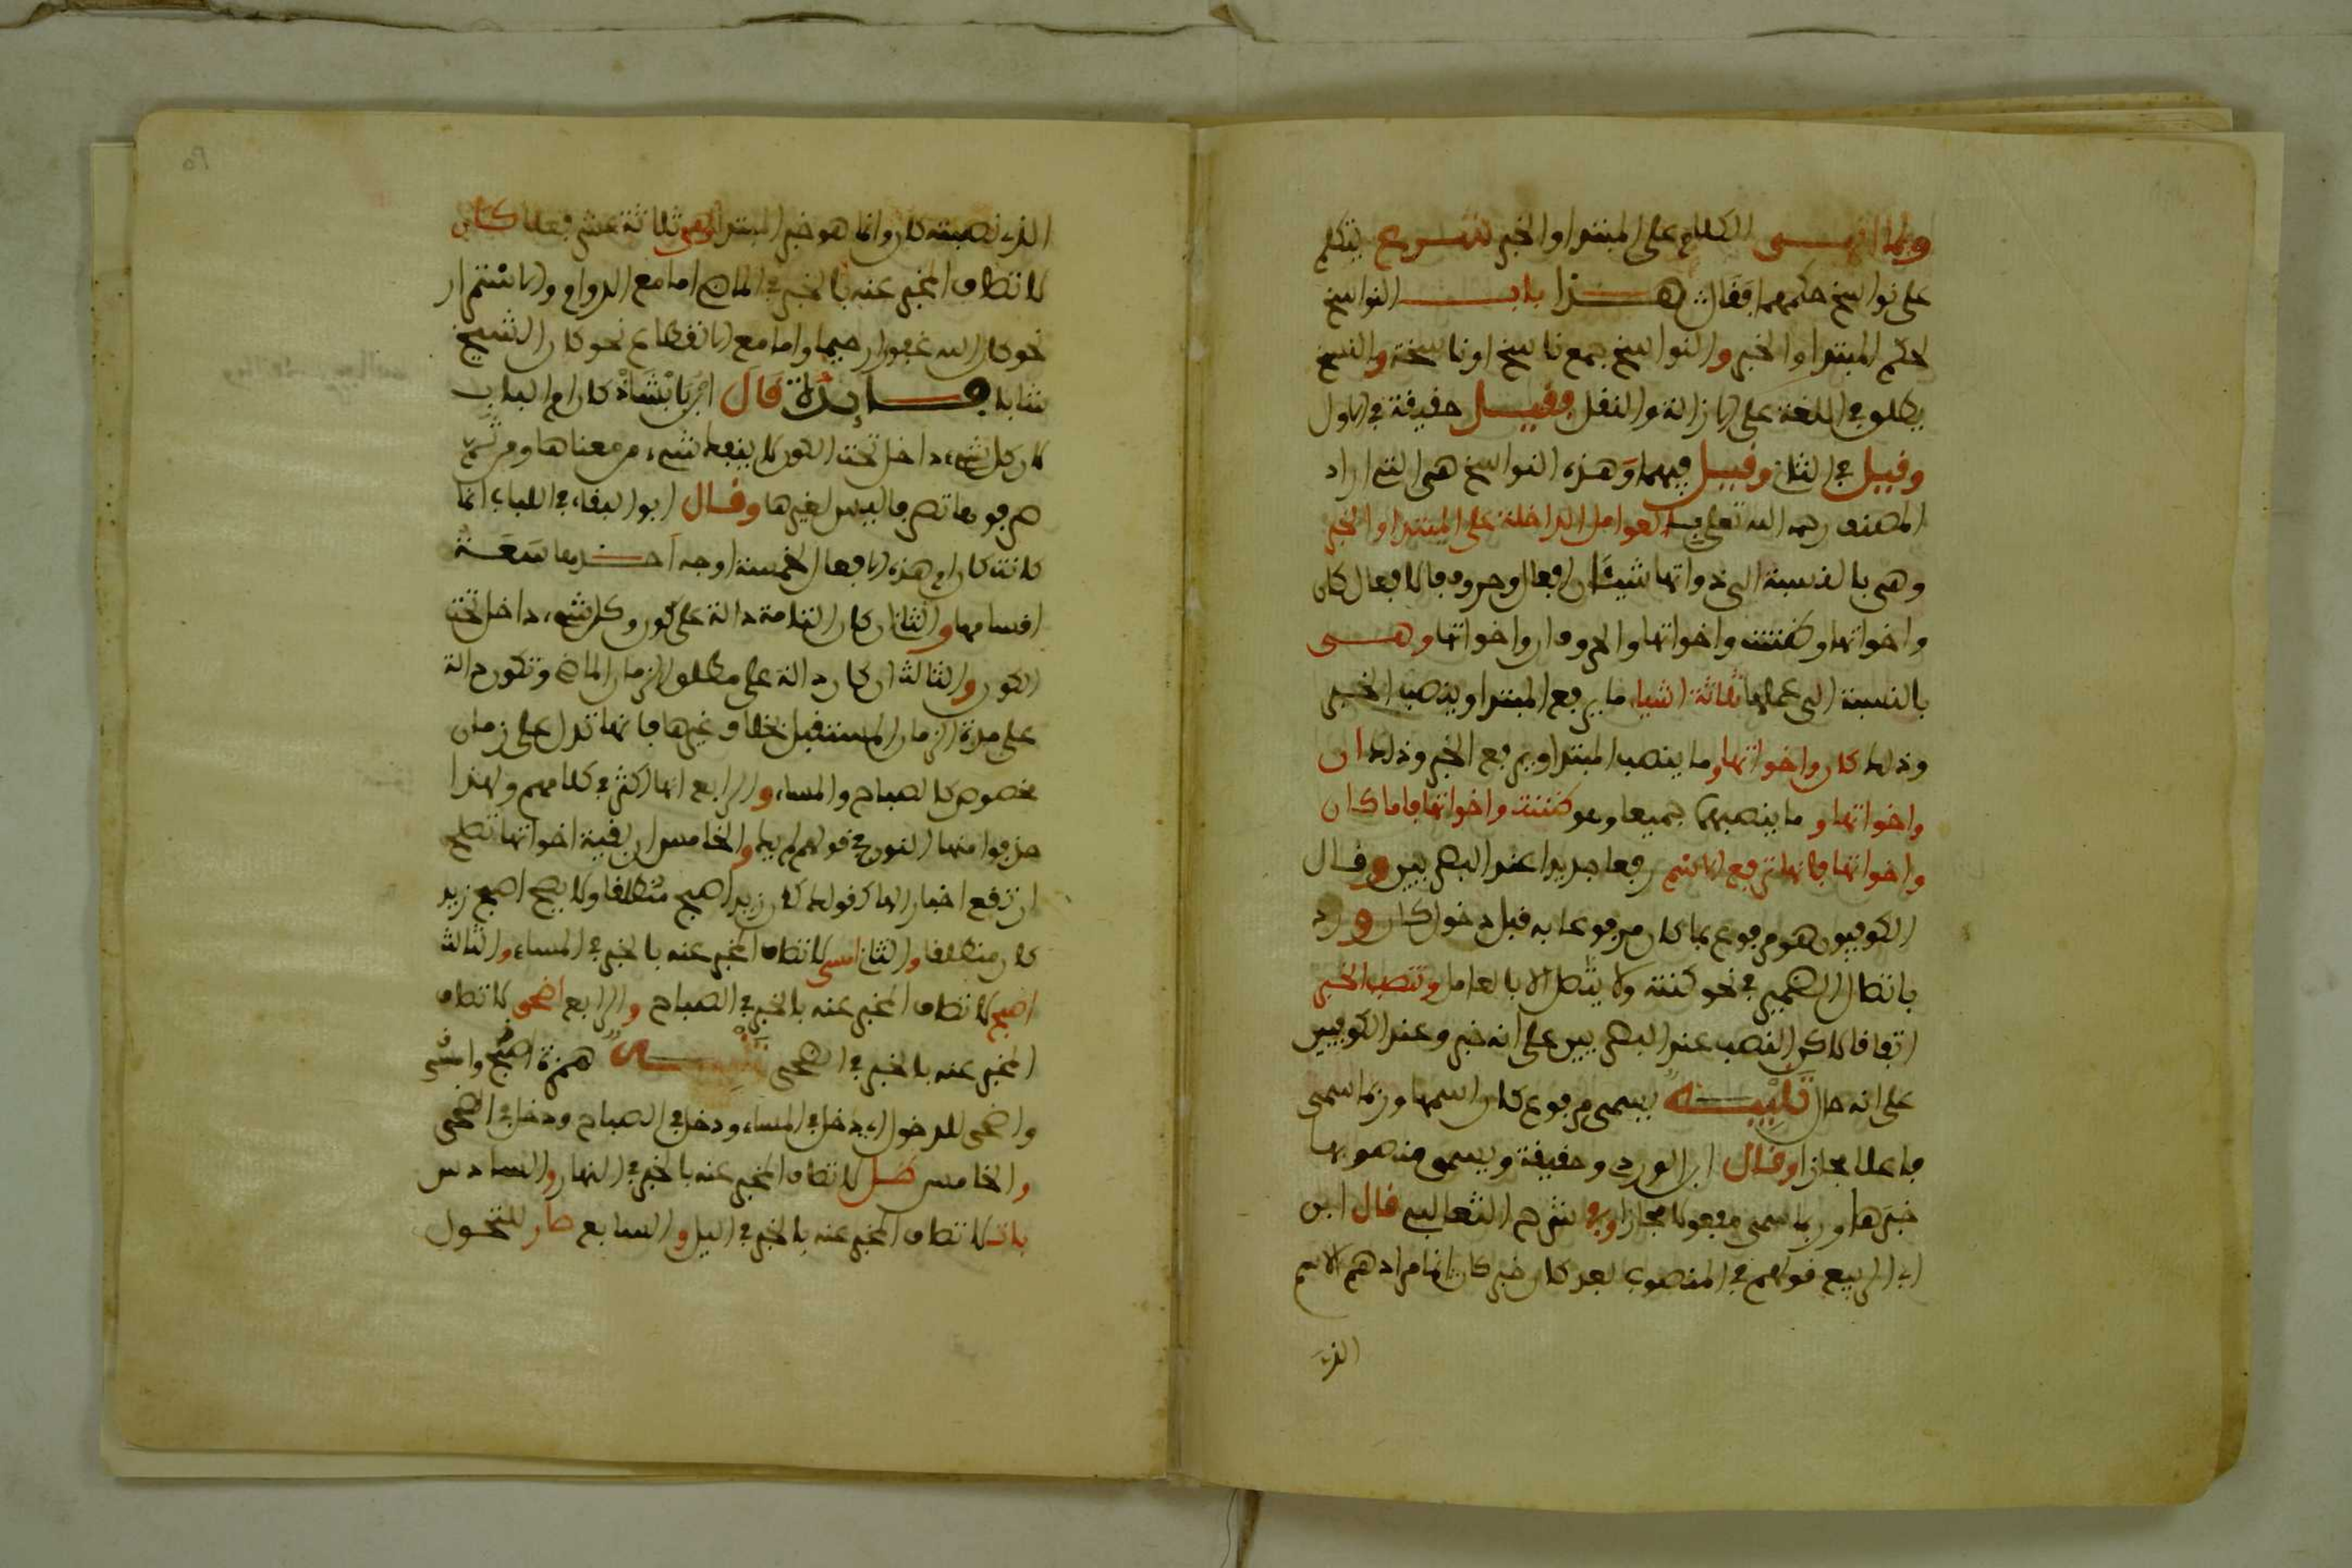 ولما انهى الكلام على المبتدا والخبر شرع يتكلم
على نواسخ حكمهما فقال هذا باب النواسخ
لحكم المبتدا والخبر والنواسخ جمع ناسخ او ناسخة والنسخ
يطلق في اللغة على الازالة والنقل فقيل حقيقة في الاول
وقيل في الثاني وقيل فيهما وهذه النواسخ هي التي اراد
المصنف رحمه الله تعلى بـ العوامل الداخلة على المبتدا والخبر
وهي بالنسبة الى ذواتها شيئان افعال وحروف فالافعال كان
واخواتها وظننت واخواتها والحروف ان واخواتها وهي
بالنسبة الى عملها ثلاثة اشياء ما يرفع المبتدا وينصب الخبر
وذلك كان واخواتها وما ينصب المبتدا ويرفع الخبر وذلك ان
واخواتها وما ينصبهما جميعا وهو ظننت واخواتها فاما كان
واخواتها فانها ترفع الاسم رفعا جديدا عند البصريين وقال
الكوفيون هو مرفوع بما كان مرفوعا به قبل دخول كان ورد
باتصال الضمير في نحو كنته ولا يتصل الا بالعامل وتنصب الخبر
اتفاقا لاكن النصب عند البصريين على انه خبر وعند الكوفيين
على انه حال تنبيه يسمى مرفوع كان اسمها وربما سمي
فاعلا مجازا وقال ابن الوردي وحقيقة ويسمى منصوبها
خبرها وربما سمي مفعولا مجازا وفي شرح الثعالبي قال ابن
ابي الربيع قولهم في المنصوب بعد كان خبر كان انما مرادهم الاسم
الذي
الذي نصبته كان وانما هو خبر المبتدا وهي ثلاثة عشر فعلا كان
لاتصاف المخبر عنه بالخبر في الماضي اما مع الدوام والاستمرار
نحو كان الله غفورا رحيما واما مع الانقطاع نحو كان الشيخ
شابا فايدة قال ابن بابشاذ كان ام الباب
لان كل شيء داخل تحت الكون لا ينفك شيء من معناها ومن ثم
صرفوها تصرفا ليس لغيرها وقال ابو البقاء في اللباب انما
كانت كان ام هذه الافعال لخمسة اوجه احدها سعة
اقسامها والثاني ان كان التامة دالة على الكون وكل شيء داخل تحت
الكون والثالث ان كان دالة على مطلق الزمان الماضي وتكون دالة
على مدة الزمان المستقبل بخلاف غيرها فانها تدل على زمان
مخصوص كالصباح والمساء والرابع انها اكثر في كلامهم ولهذا
حذفوا منها النون في قولهم لم يك والخامس ان بقية اخواتها تصلح
ان تقع اخبارا لها كقولك كان زيد اصبح منطلقا ولا يصح اصبح زيد
كان منطلقا والثاني امسى لاتصاف المخبر عنه بالخبر في المساء والثالث
اصبح لاتصاف المخبر عنه بالخبر في الصباح والرابع اضحى لاتصاف
المخبر عنه بالخبر في الضحى همزة اصبح وامسى
واضحى للدخول اي دخل في المساء ودخل في الصباح ودخل في الضحى
والخامس ظل لاتصاف المخبر عنه بالخبر في النهار والسادس
بات لاتصاف المخبر عنه بالخبر في اليل والسابع صار للتحول